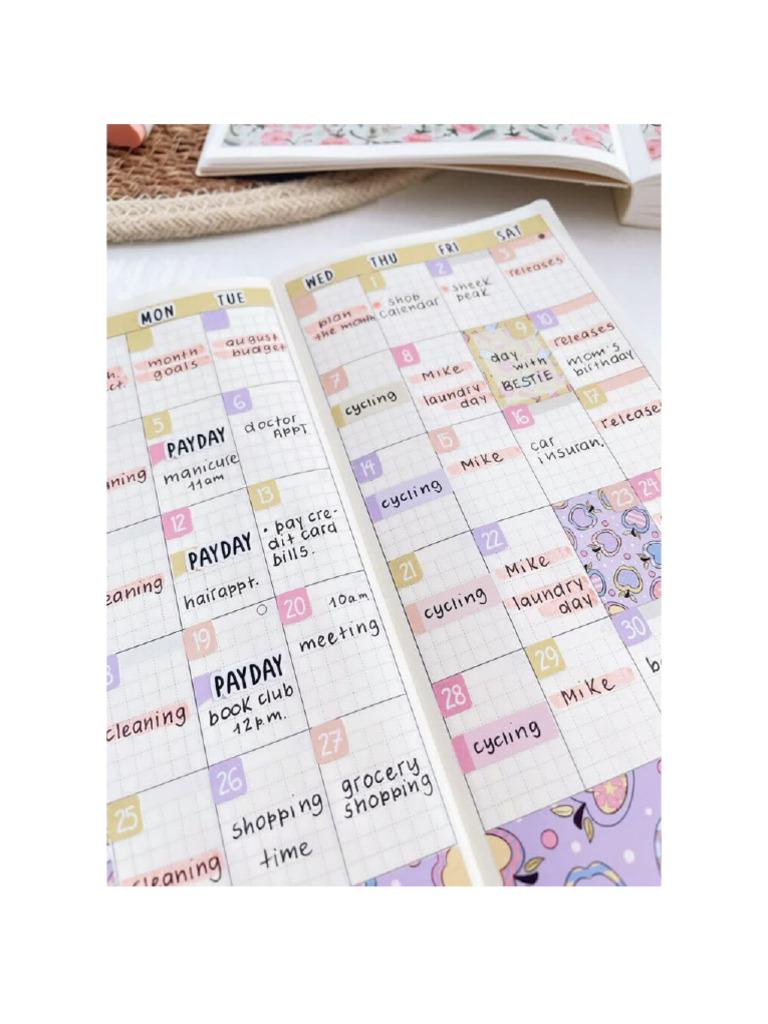 MON TUE
month
goals
august
budget
5
PAYDAY
manicure
11am
6
doctor
APPT
12
PAYDAY
hairappt.
13
• pay cre-
dit card
bills.
cleaning
19
PAYDAY
book club
12p.m.
20
10am
meeting
25
cleaning
26
shopping
time
27
grocery
shopping
WED THU FRI SAT
plan
the month
1
shop
calendar
2
sneek
peak
3
releases
7
cycling
8
Mike
laundry
day
9
day
with
BESTIE
10
releases
mom's
birthday
14
cycling
15
Mike
16
car
insuran.
17
release
21
cycling
22
Mike
laundry
day
23
24
28
cycling
29
Mike
30